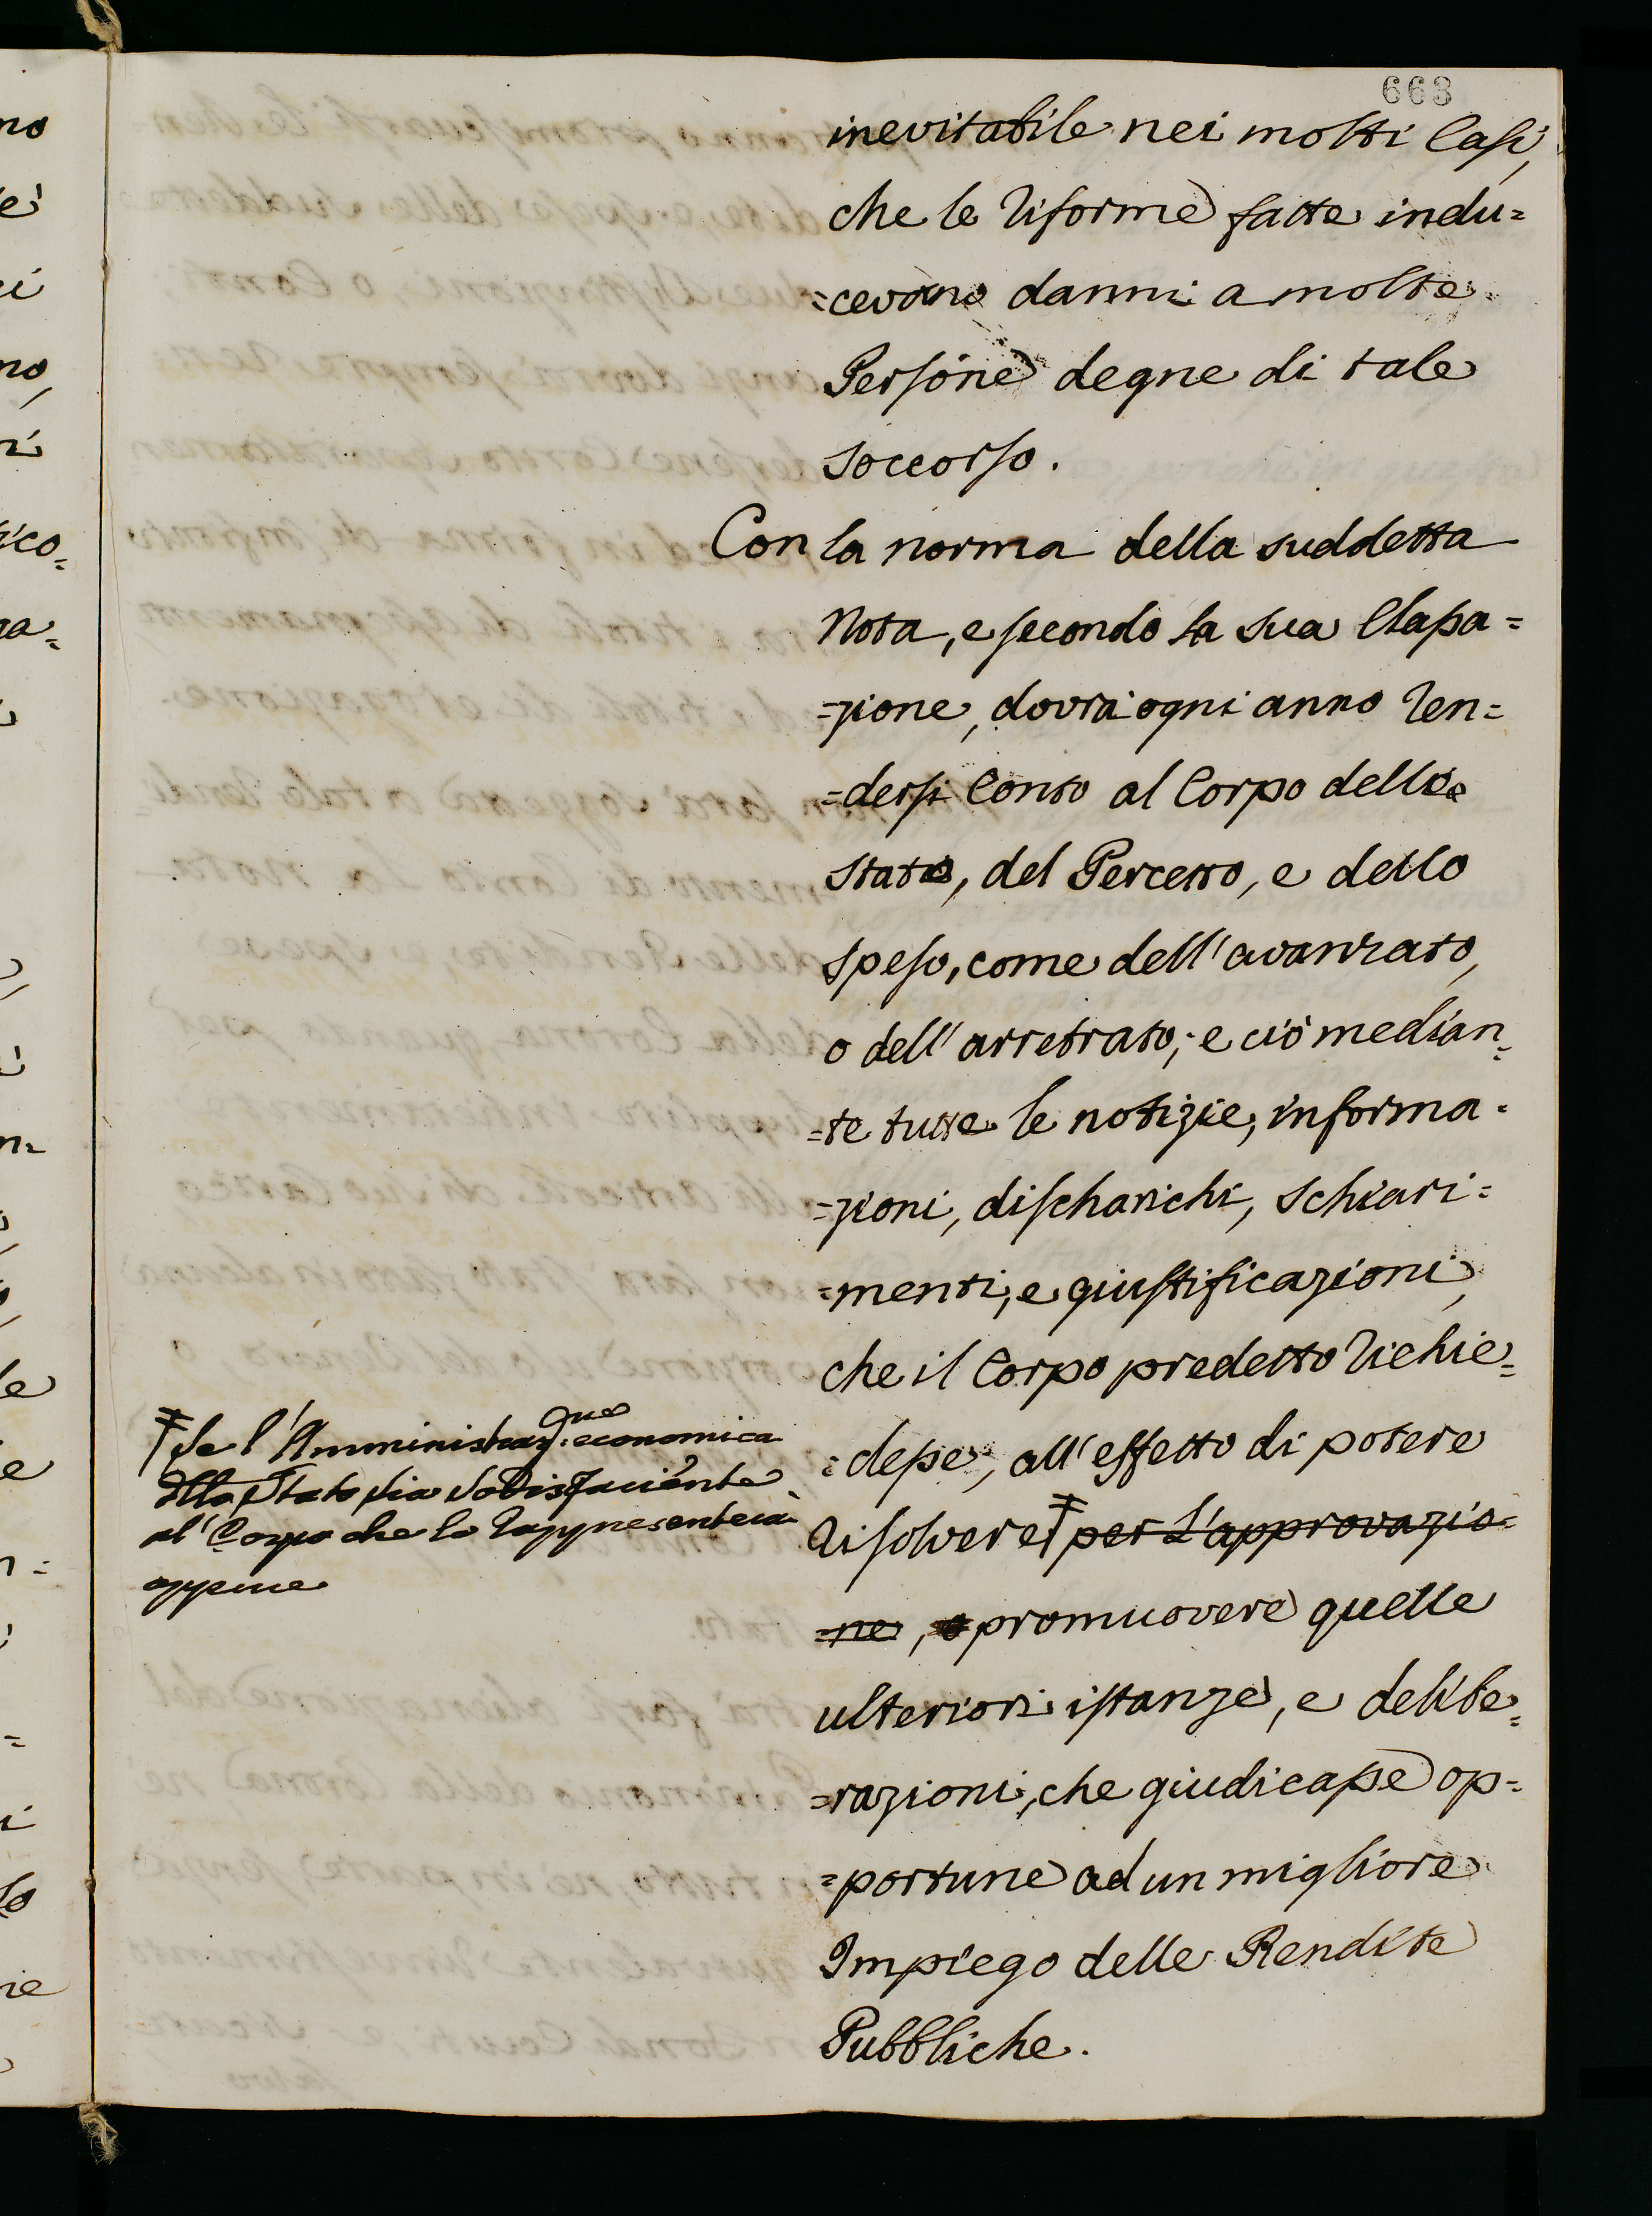 663
inevitabile nei molti Casi,
che le riforme fatte indu=
=cevano danni a molte
Persone degne di tale
soccorso.
Con la norma della suddetta
Nota, e secondo la sua Classa=
=zione, dovrà ogni anno ren=
=dersi Conto al Corpo dello
Stato, del Percetto, e dello
speso, come dell'avanzato,
o dell'arretrato; e ciò median=
=te tutte le notizie, informa=
=zioni, discharichi, schiari=
=menti, e giustificazioni,
che il Corpo predetto richie=
=desse, all'effetto di potere
risolvere ‡ per l'approvazio=
=ne, o promuovere quelle
ulteriori istanze, e delibe=
=razioni, che giudicasse op=
=portune ad un migliore
Impiego delle Rendite
Pubbliche.
‡ se l'Amministraz.ne economica
dello Stato sia sodisfaciente
al Corpo che lo rappresenterà
oppure